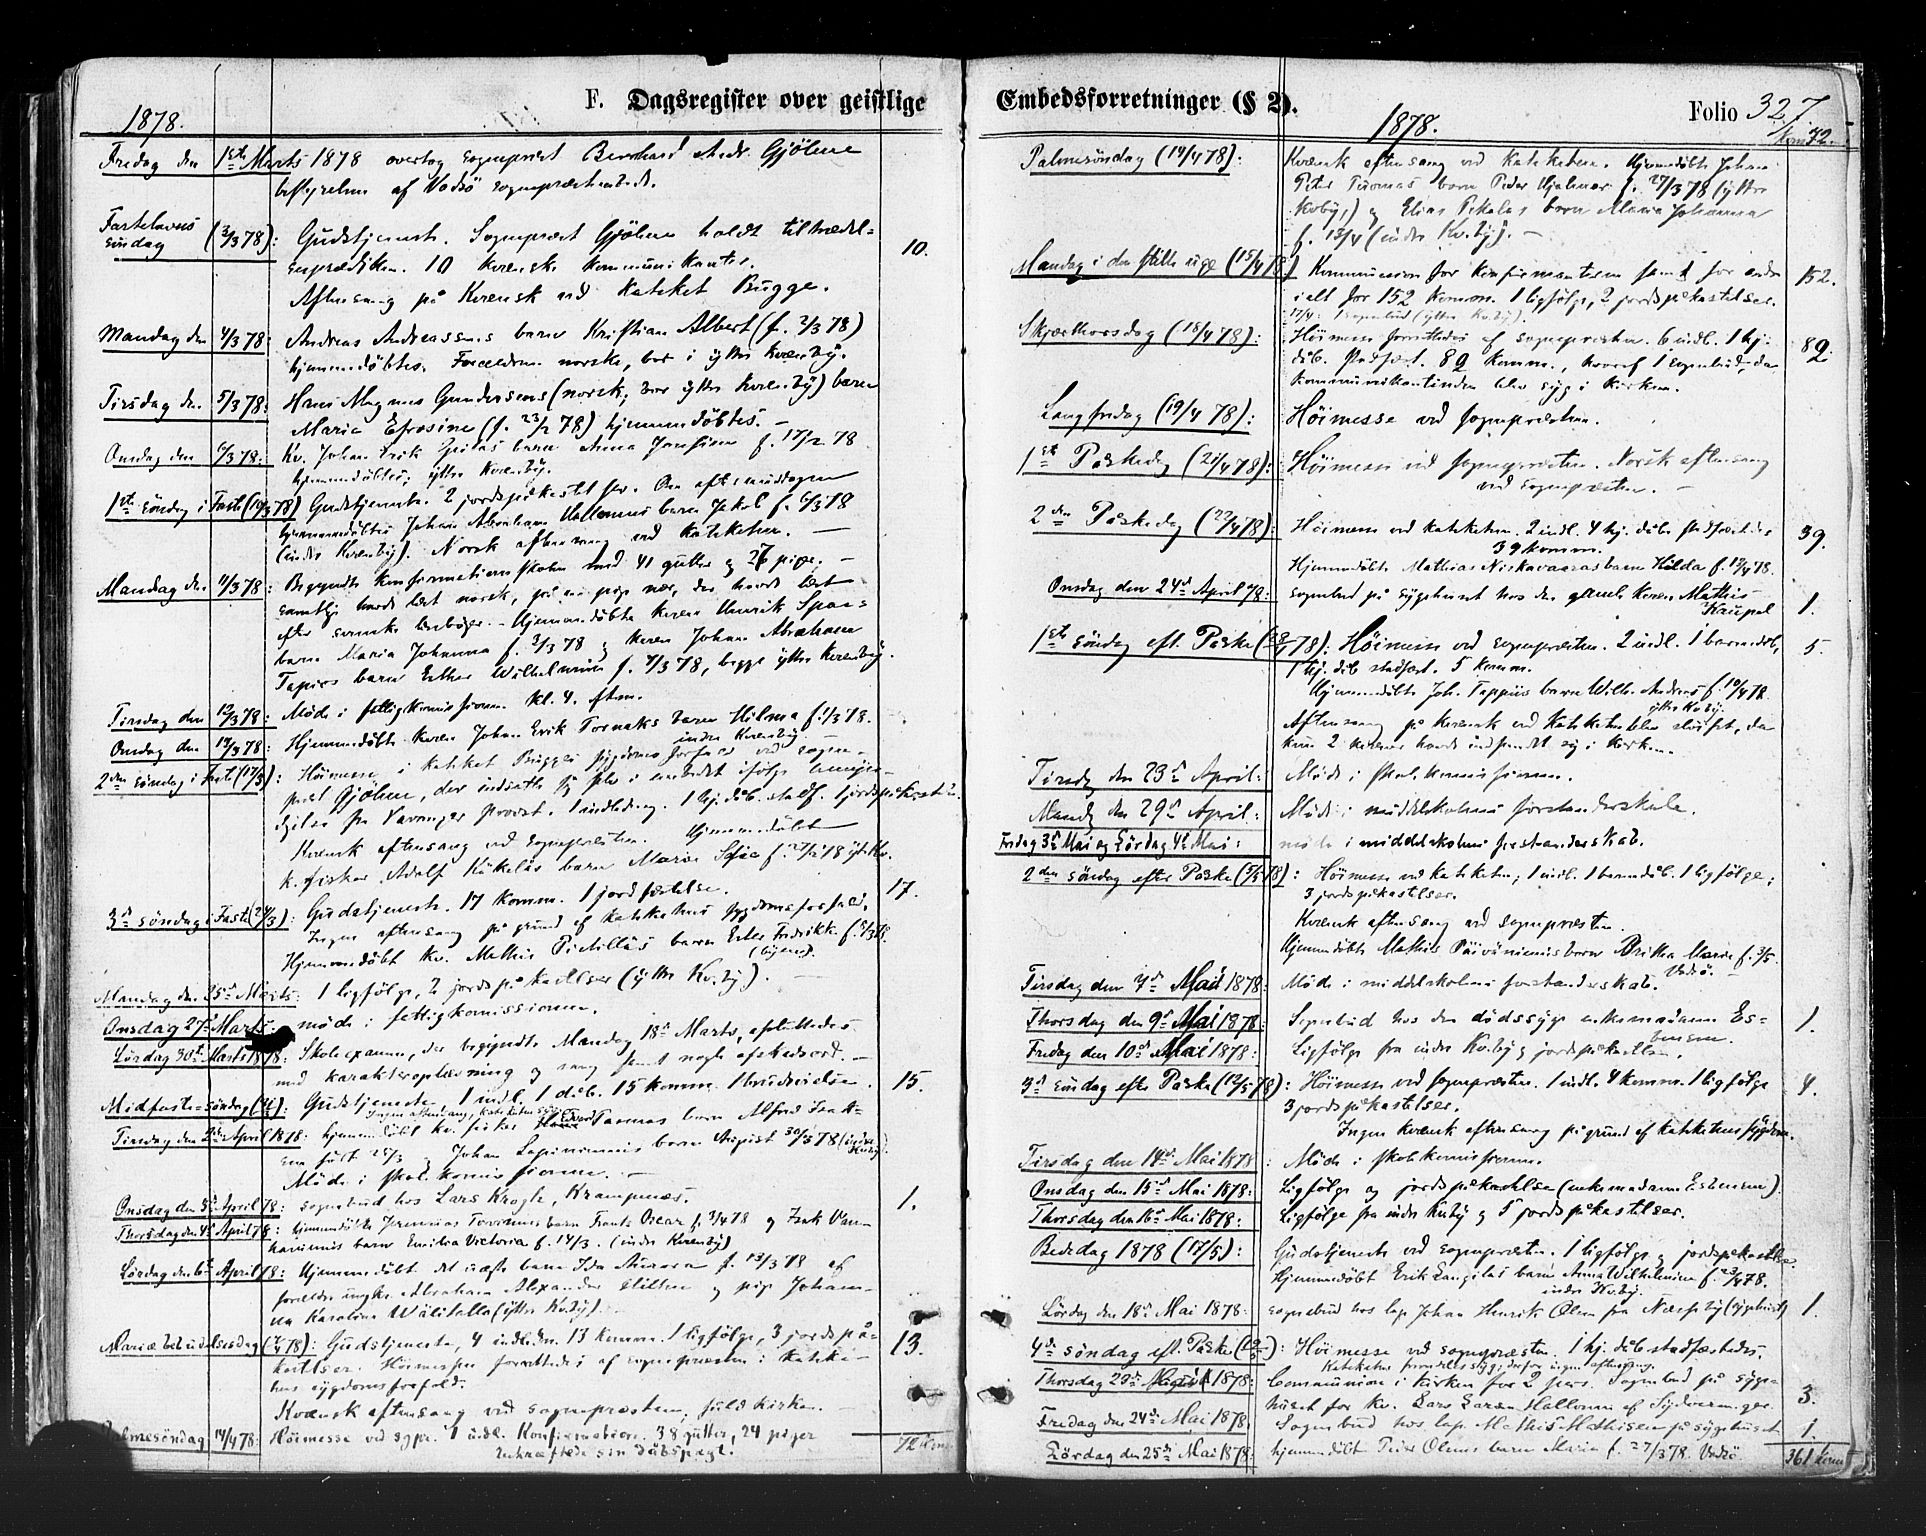 F. Dagsregister over geistlige
1878.
Fredag den 1ste Marts 1878 overtog sognepræst Bernhard Andr. Gjölme
bestyrelsen af Vadsö sognepræstembede.
Fastelavns söndag (3/3 78): Gudstjeneste. Sognepræst Gjölme holdt tiltrædel-
sesprædiken. 10 kvenske kommunikanter. 10.
Aftensang på Kvensk ved kateket Bugge.
Mandag den 4/3 78: Andreas Andreassens barn Kristian Albert (f. 2/3 78)
hjemmedöbtes. Forældrene norske, bor i ytter Kvenby.
Tirsdag den 5/3 78: Hans Magnus Gundersens (norsk, bor ytter Kvenby) barn
Maria Efrosine (f. 23/2 78) hjemmedöbtes. —
Onsdag den 6/3 78: Kv. Johan Erik barn Anna Josefine f. 17/2 78
hjemmedöbtes, ytter Kvenby.
1ste söndag i Faste (10/3 78) Gudstjeneste. 2 jordspåkastelser. Om eftermiddagen
hjemmedöbtes Johan Abraham barn Jakob f. 6/3 78
(indre Kvenby). Norsk aftensang ved kateketen. —
Mandag den 11/3 78: Begyndte konfirmationsskolen med 41 gutter og 26 piger. —
samtlige havde læst norsk, på en pige nær, der havde læst
efter svenske læsebøger. — Hjemmedöbte kvæn Henrik
barn Maria Johanna f. 3/3 78 og kvæn Johan Abraham
Tapios barn Ester Wilhelmine f. 7/3 78, begge ytter Kvenby.
Tirsdag den 12/3 78: Möde i fattigkommissionen kl. 4. eftm.
Onsdag den 13/3 78: Hjemmedöbt kvæn Johan Erik Tornaks barn Hilma f. 1/3 78.
indre Kvenby.
2den söndag i Faste (17/3): Höimesse i kateket Bugges sygdoms forfald ved sogne-
præst Gjölme, der indsatte sig selv i embedet ifölge bemyn-
digelse fra Varanger provst. 1 indledning. 1 hj. döb. stadf. 1 jordspåkastelse.
Kvensk aftensang ved sognepræsten. Hjemmedöbt
k. fisker Adolf Kukelas barn Maria Sofie f. 27/2 78 yt. Kv.
3de söndag i Faste (24/3): Gudstjeneste. 17 komm. 1 jordfæstelse. 17.
Ingen aftensang på grund af kateketens sygdomsforfald.
Hjemmedöbt kv. Mathis Pietiläs barn Ester Fredrikke f. 3/3 78.
(byen).
Mandag den 25de Marts: 1 ligfölge, 2 jordspåkastelser (ytter Kv.by). —
Onsdag 27de Marts: möde i fattigkommissionen.
Lördag 30te Marts 1878: Skoleexamen, der begyndte Mandag 18de Marts, afsluttedes
med karakteroplæsning og sang samt nogle afskedsord. —
Midfaste-söndag (31/3): Gudstjeneste 1 indl. 1 döb. 15 komm. 1 brudevielse. 15.
Ingen aftensang, kateketen syg.
Tirsdag den 2den April 1878: hjemmedöbt kv. fisker Edvard Tuomas barn Alfred Isak
född 24/3 og Johan Lapinieminis barn August 30/3 78 (indre Kvenby).
Möde i skolekommissionen. —
Onsdag den 3de April 78: sognebud hos Lars Krogh, Krampenæs. 1.
Thorsdag den 4de April 78: hjemmedöbte Jeremias barn Frants Oscar f. 3/4 78 og Isak Van-
haniemis barn Emilia Victoria f. 14/3. (indre Kvenby)
Lördag den 6te April 78: Hjemmedöbt det uægte barn Ida Aurora f. 13/3 78 af
forældre ungkr. Abraham Alexander og pige Johan-
na Karolina Wälitallo (ytter Kv.by).
Mariæ bebudelsesdag (7/4 78): Gudstjeneste, 4 indledn. 13 komm. 1 ligfölge, 3 jordspå- 13.
kastelser. Höimessen forrettedes af sognepræsten i kateke-
tens sygdomsforfald.
Kvensk aftensang ved sognepræsten; fuld kirke.
Palmesöndag 14/4 78: Höimesse ved sgpr. 1 indl. Konfirmation. 38 gutter, 24 piger
bekræftede sin dåbspagt. 72 kom
Embedsforretninger (§ 2).
Folio 327.
1878.
kom 72.
Palmesöndag (14/4 78): Kvensk aftensang ved kateketen. Hjemmedöbt Johan
Peter Tuomas barn Peder Hjalmar f. 27/3 78 (ytter
Kvby,) og Elias barn Maria Johanna
f. 13/4 (indre Kv.by). —
Mandag i den stille uge (15/4 78) Kommunion for konfirmanterne samt for andre
ialt for 152 komm. 1 ligfölge, 2 jordspåkastelser. 152.
17/4: 1 sognebud (ytter Kv.by).
Skjærthorsdag (18/4 78): Höimesse forrettedes af sognepræsten. 6 indl. 1 hj.
döb. stadfæst. 89 komm., hvoraf 1 sognebud, da 89.
kommunikantinden blev syg i kirken.
Langfredag (19/4 78): Höimesse ved sognepræsten.
1ste Påskedag (21/4 78): Höimesse ved sognepræsten. Norsk aftensang
ved sognepræsten. —
2den Påskedag (22/4 78): Höimesse ved kateketen. 2 indl. 4 hj. döbte stadfæstedes
39 komm. 39.
Hjemmedöbte Mathias Niskavaaras barn Hilda f. 13/4 78.
Onsdag den 24de April 78: Sognebud på sygehuset hos den gamle kvæn Mathis
Kaupal 1.
1ste söndag eft. Påske (28/4 78): Höimesse ved sognepræsten. 2 indl. 1 barnedöb, 5.
1 hj. döb stadfæst. 5 komm.
Hjemmedöbte Joh. Tappiis barn Wilh. Andreas f. 10/4 78.
ytter Kv.by.
Aftensang på kvensk ved kateketen blev slöifet, da
kun 2 kvæner havde indfundet sig i kirken.
Tirsdag den 23de April: Möde i skolekommissionen.
Mandag den 29de April: Möde i middelskolens forstanderskab.
Fredag 3de Mai og Lördag 4de Mai: möde i middelskolens forstanderskab.
2den söndag efter Påske (5/5 78): Höimesse ved kateketen; 1 indl. 1 barnedöb. 1 ligfölge;
3 jordspåkastelser.
Kvensk aftensang ved sognepræsten.
Hjemmedöbte Mathis Päiväniemis barn Britha Marie f. 3/5.
Vadsö.
Tirsdag den 7de Mai 1878: Möde i middelskolens forstanderskab.
Thorsdag den 9de Mai 1878: Sognebud hos den dödssyge enkemadame Es- 1.
bensen.
Fredag den 10de Mai 1878: Ligfölge fra indre Kv.by og jordspåkastelse.
3de söndag efter Påske (12/5 78): Höimesse ved sognepræsten. 1 indl. 4 komm. 1 ligfölge 4.
3 jordspåkastelser.
Ingen kvensk aftensang på grund af kateketens sygdom.
Tirsdag den 14de Mai 1878: Möde i skolekommissionen.
Onsdag den 15de Mai 1878: Ligfölge og jordspåkastelse (enkemadame Esbensen)
Thorsdag den 16de Mai 1878: Ligfölge fra indre Kv.by og 5 jordspåkastelser.
Bededag 1878 (17/5): Gudstjeneste ved sognepræsten. 1 ligfölge og jordspåkastelse.
Hjemmedöbt Erik Langilas barn Anna Wilhelmina f. 23/4 78.
indre Kv.by.
Lördag den 18de Mai 1878: sognebud hos lap Johan Henrik Olsen fra Næsseby (sygehuset) 1.
4de söndag eft. Påske (19/5): Höimesse ved sognepræsten. 1 hj. döb stadfæstedes.
Kateketen fremdeles syg, derfor ingen aftensang.
Thorsdag 23de 1878: Communion i kirken for 2 pers. Sognebud på syge-
huset for kv. Lars Larsen Hallonen af Sydvaranger. 3.
Fredag den 24de Mai 1878. Sognebud hos lap. Mathis Mathisen på sygehuset 1.
Lördag den 25de Mai 1878: hjemmedöbt Peder Olsens barn Maria f. 27/3 78. Vadsö
361 kom